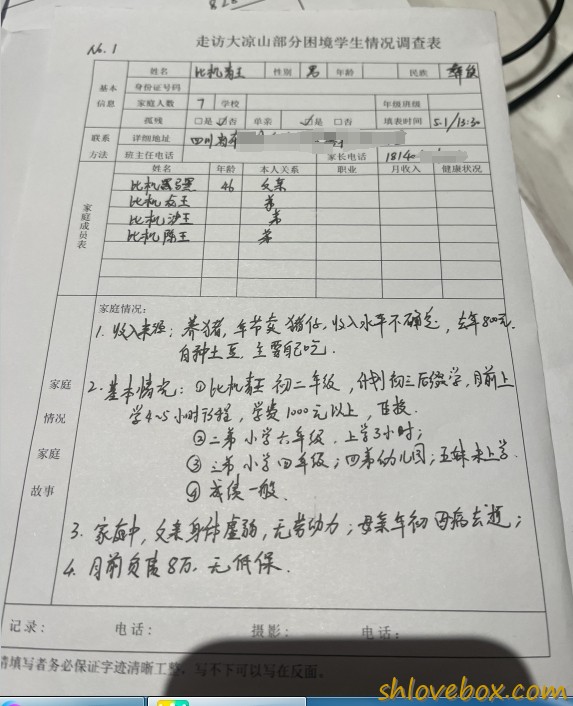 No. 1
走访大凉山部分困境学生情况调查表
基本信息 姓名 比机 王 性别 男 年龄 民族 彝族
身份证号码
家庭人数 7 学校 年级班级
孤残 □是 ☑否 单亲 ☑是 □否 填表时间 5.1/13:30
联系方法 详细地址 四川省
班主任电话 家长电话 18140
家庭成员表 姓名 年龄 本人关系 职业 月收入 健康状况
比机 46 父亲
比机 王 弟
比机沙王 弟
比机 王 弟
家庭情况 家庭故事
家庭情况:
1. 收入来源: 养猪, 年节卖猪仔, 收入水平不确定, 去年800元.
自种土豆, 主要自己吃.
2. 基本情况: ①比机 王 初二年级, 计划初三后缀学, 目前上
学4~5小时路程, 学费1000元以上, 住校.
②二弟 小学六年级, 上学3小时;
③三弟 小学四年级; 四弟幼儿园; 五妹未上学.
④成绩一般.
3. 家庭中, 父亲身体虚弱, 无劳动力; 母亲年初因病去逝;
4. 目前负责8万. 无低保.
记录: 电话: 摄影: 电话:
请填写者务必保证字迹清晰工整, 写不下可以写在反面.
shlovebox.com